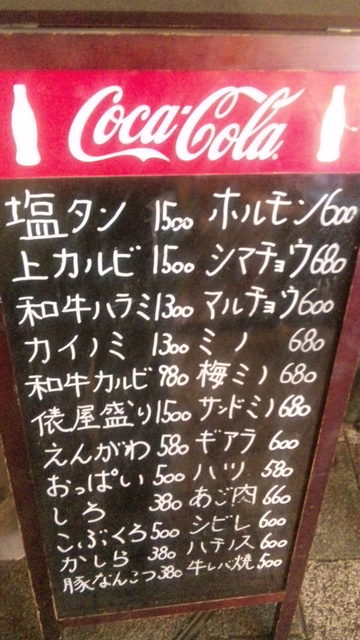 Coca-Cola
塩タン 1500 ホルモン 600
上カルビ 1500 シマチョウ 680
和牛ハラミ 1300 マルチョウ 600
カイノミ 1300 ミノ 680
和牛カルビ 980 梅ミノ 680
俵屋盛り 1500 サンドミノ 680
えんがわ 580 ギアラ 600
おっぱい 500 ハツ 580
しろ 380 あご肉 660
こぶくろ 500 シビレ 600
かしら 380 ハチノス 600
豚なんこつ 380 牛レバ焼 500